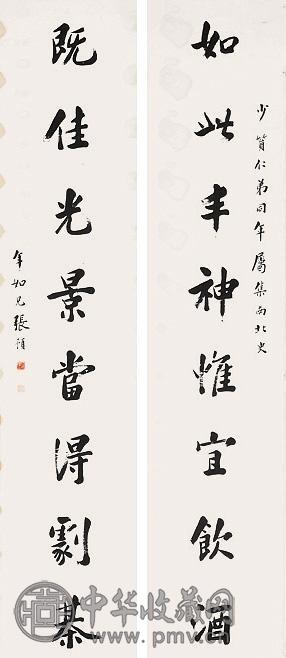 少質仁弟同年屬集南北史
如此丰神惟宜飲酒
既佳光景當得劇棊
年如兄張預
中华收藏网
www.pmv.cn